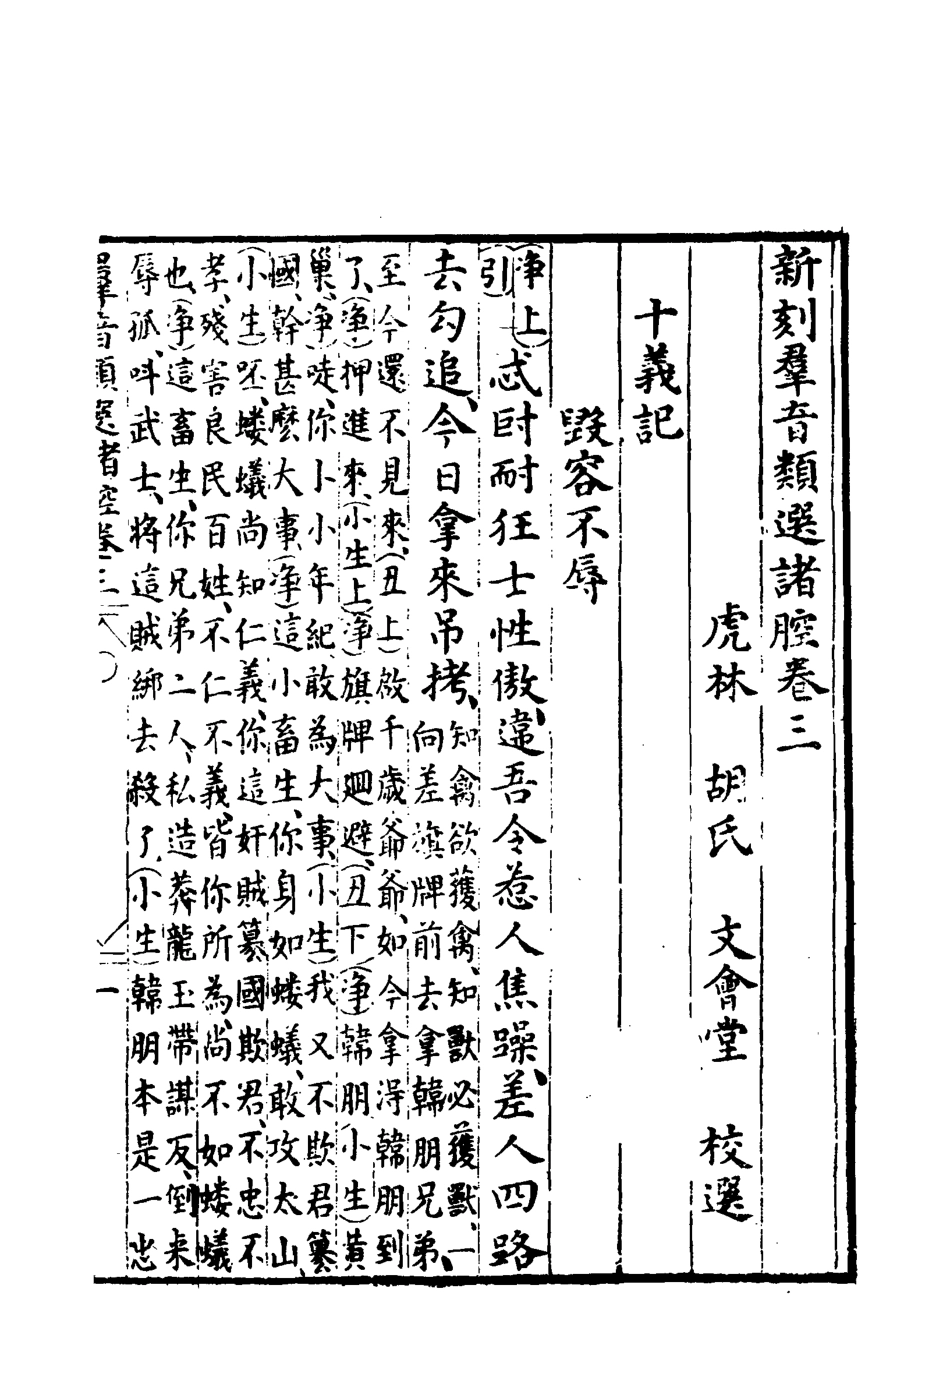 新刻羣音類選諸腔卷三
虎林 胡氏 文會堂 校選
十義記
毀容不辱
引(淨上)忒尀耐狂士性傲、違吾令惹人焦躁、差人四路
去勾追、今日拿來吊拷、知禽欲獲禽、知獸必獲獸、一
向差旗牌前去拿韓朋兄弟、
至今還不見來、(丑上)啟千歲爺爺、如今拿淂韓朋到
了、(淨)押進來、(小生上)(淨)旗牌廻避、(丑下)(淨)韓朋(小生)黃
巢、(淨)唗、你小小年紀、敢為大事、(小生)我又不欺君篡
國、幹甚麽大事、(淨)這小畜生、你身如蝼蟻、敢攻太山、
(小生)呸、蝼蟻尚知仁義、你這奸賊篡國欺君、不忠不
孝、殘害良民百姓、不仁不義、皆你所為、尚不如蝼蟻
也、(淨)這畜生、你兄弟二人、私造莽龍玉帶謀反、倒來
辱孤、呌武士、將這賊綁去殺了、(小生)韓朋本是一忠
羣音類選諸腔卷三 一